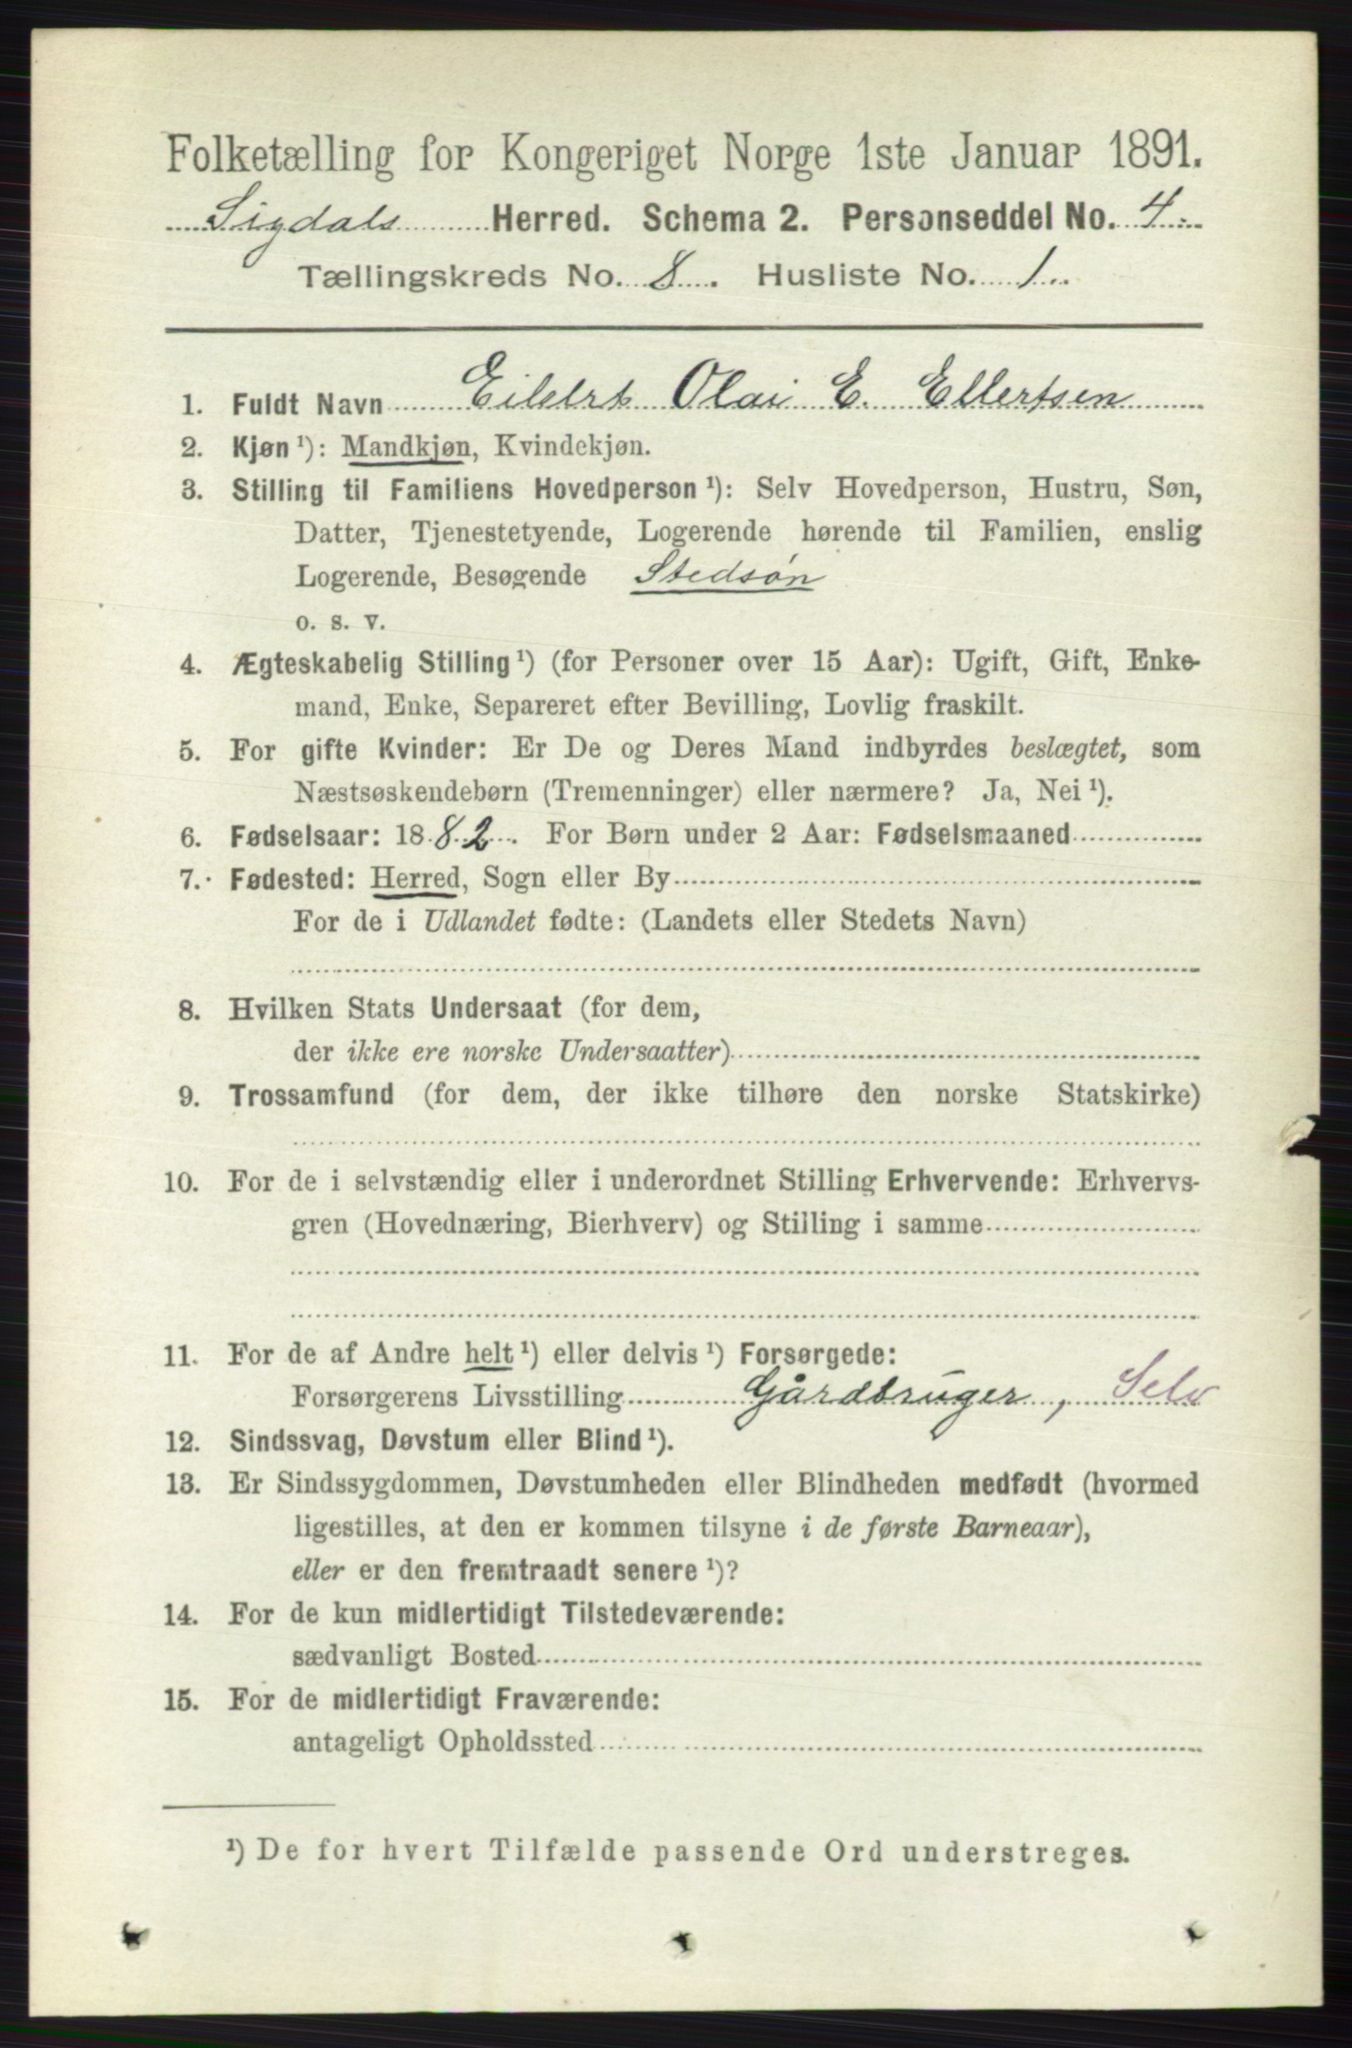 Folketælling for Kongeriget Norge 1ste Januar 1891.
Sigdals Herred. Schema 2. Personseddel No. 4
Tællingskreds No. 8. Husliste No. 1
1. Fuldt Navn Eilert Olai E. Ellertsen
2. Kjøn ¹): Mandkjøn, Kvindekjøn.
3. Stilling til Familiens Hovedperson ¹): Selv Hovedperson, Hustru, Søn,
Datter, Tjenestetyende, Logerende hørende til Familien, enslig
Logerende, Besøgende Stedsøn
o. s. v.
4. Ægteskabelig Stilling ¹) (for Personer over 15 Aar): Ugift, Gift, Enke-
mand, Enke, Separeret efter Bevilling, Lovlig fraskilt.
5. For gifte Kvinder: Er De og Deres Mand indbyrdes beslægtet, som
Næstsøskendebørn (Tremenninger) eller nærmere? Ja, Nei ¹).
6. Fødselsaar: 1882. For Børn under 2 Aar: Fødselsmaaned
7. Fødested: Herred, Sogn eller By
For de i Udlandet fødte: (Landets eller Stedets Navn)
8. Hvilken Stats Undersaat (for dem,
der ikke ere norske Undersaatter)
9. Trossamfund (for dem, der ikke tilhøre den norske Statskirke)
10. For de i selvstændig eller i underordnet Stilling Erhvervende: Erhvervs-
gren (Hovednæring, Bierhverv) og Stilling i samme
11. For de af Andre helt ¹) eller delvis ¹) Forsørgede:
Forsørgerens Livsstilling Gårdbruger, Selv
12. Sindssvag, Døvstum eller Blind ¹).
13. Er Sindssygdommen, Døvstumheden eller Blindheden medfødt (hvormed
ligestilles, at den er kommen tilsyne i de første Barneaar),
eller er den fremtraadt senere ¹)?
14. For de kun midlertidigt Tilstedeværende:
sædvanligt Bosted
15. For de midlertidigt Fraværende:
antageligt Opholdssted
¹) De for hvert Tilfælde passende Ord understreges.